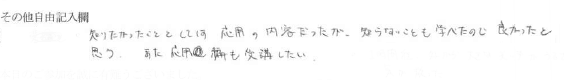 その他自由記入欄
知りたかったこととしては 応用の内容だったが、知らないことも学べたので 良かったと
思う。 また 応用編も受講したい。